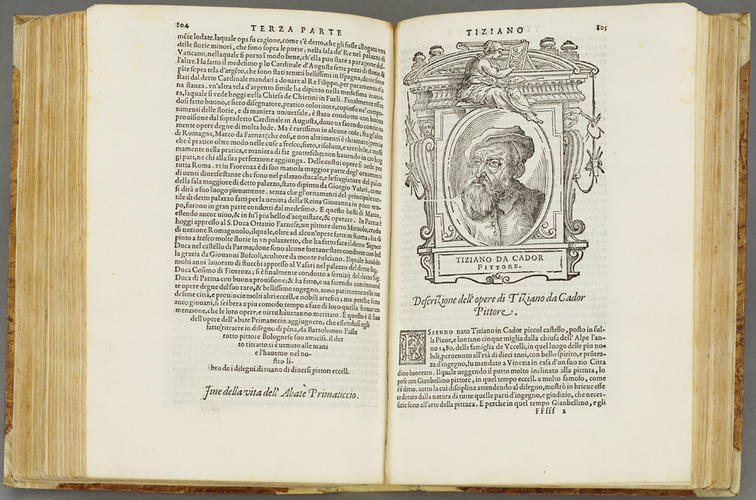 804
TERZA PARTE
mēte lodate. laquale opa fu cagione, come s'è detto, che gli fusse allogata una
delle storie minori, che sono sopra le porte; nella sala de' Re nel palazzo di
Vaticano, nellaquale si portò ī modo bene, ch'ella puo stare a paragone dell'
l'altre. Ha fatto il medesimo p lo Cardinale d'Augusta sette pezzi di storie &
pīte sopra tela d'argēto, che sono stati tenuti bellissimi in Ispagna, doue sono
stati dal detto Cardinale mandati a donare al Re Filippo, per paramento d'u
na stanza. vn'altra tela d'argento simile ha dipinto nella medesima manie-
ra, laquale si vede hoggi nella Chiesa de Chietini in Furli. Finalmente essen
dosi fatto buono, e fiero disegnatore, pratico coloritore, copioso ne' compo-
nimenti delle storie, e di maniera uniuersale, è stato condotto con buona
prouisione dal sopradetto Cardinale in Augusta, doue ua facendo continua
mente opere degne di molta lode. Ma è rarissimo in alcune cose, fra gl'altri
di Romagna, Marco da Faenza (che cosi, e non altrimenti è chiamato) percio
che è pratico oltre modo nelle cose a fresco, fiero, risoluto, e terribile, e massi
mamente nella pratica, e maniera di far grottesche; non hauendo in cio hog
gi pari, e chi alla sua perfezzione aggiunga. Delle costui opere si vede per
tutta Roma. et in Fiorenza è di suo mano la maggior parte degl'ornamenti
di uenti diuerse stanze che sono nel palazzo ducale, e le fregiature del palco
della sala maggiore di detto palazzo, stato dipinto da Giorgio Vasari, come
si dirà a suo luogo pienamente. senza che gl'ornamenti del principale cor-
tile di detto palazzo fatti per la uenuta della Reina Giouanna in poco tem-
po, furono in gran parte condotti dal medesimo. E questo basti di Marco,
essendo ancor uiuo, & in su'l piu bello d'acquistare, & operare. In Parma è
hoggi appresso al S. Duca Ottauio Farnese, un pittore detto Miruolo, credo
di nazione Romagnuolo, ilquale, oltre ad alcun'opere fatte in Roma, ha di-
pinto a fresco molte storie in vn palazzetto, che ha fatto fare il detto Signor
Duca nel castello di Parma, doue sono alcune fontane state condotte con bel
la grazia da Giouanni Boscoli, scultore da monte Pulciano. Ilquale hauédo
molti anni lauorato di stucchi appresso al Vasari nel palazzo del detto Sig.
Duca Cosimo di Fiorenza; si è finalmente condotto a seruizij del detto Sig.
Duca di Parma con buona prouisione; & ha fatto, e ua facendo continuamē
te opere degne del suo raro, & bellissimo ingegno. sono parimente nelle me
desime città, e prouincie molti altri eccel. e nobili artefici; ma perche sono
anco giouani, si serberà a piu comodo tempo a fare di loro quella honorata
menzione, che le loro opere, e virtu hiueranno meritato. E questo è il fine
dell'opere dell'Abate Primaticcio. aggiugnerò, che essendosi egli
fatto ritrarre in disegno di pēna, da Bartolomeo Passe
rotto pittore Bolognese suo amiciss. il det
to ritratto ci è uenuto alle mani
e l'hauemo nel no-
stro li-
bro de i disegni di mano di diuersi pittori eccell.
Fine della vita dell' Abate Primaticcio.
TIZIANO
805
TIZIANO DA CADOR
PITTORE.
Descrizione dell' opere di Tiziano da Cador
Pittore.
ESSENDO nato Tiziano in Cador piccol castello, posto in sul-
la Piaue, e lontano cinque miglia dalla chiusa dell' Alpe l'an-
no 1480. della famiglia de Vecelli, in quel luogo delle piu no-
bili, peruenuto all'età di dieci anni, con bello spirito, e prōtez
za d'ingegno, fu mandato a Vinezia in casa d'un suo zio Citta
dino honorato. Il quale ueggendo il putto molto inclinato alla pittura, lo
pose con Gianbellino pittore, in quel tempo eccell. e molto famoso, come
s'è detto. sotto la cui disciplina attendendo al disegno, mostrò in brieue esse
re dotato dalla natura di tutte quelle parti d'ingegno, e giudizio, che neces-
sarie sono all'arte della pittura. E perche in quel tempo Gianbellino, e gli
FFfff 2